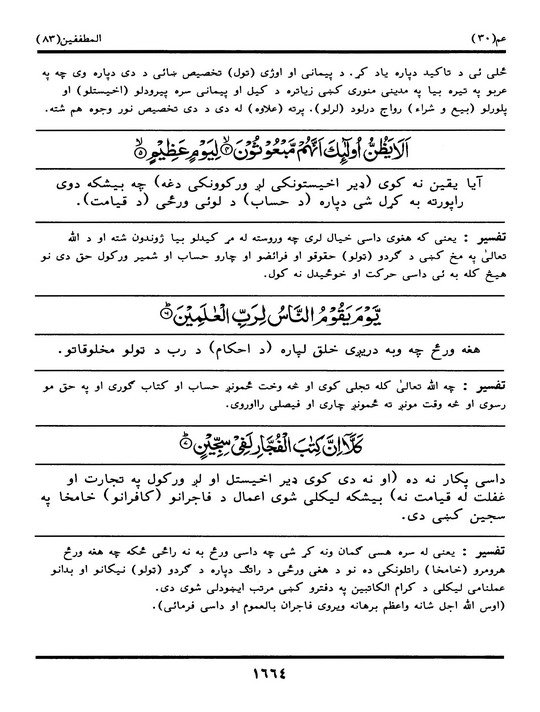 عم(٣٠)
المطففين(٨٣)
ځلی ئی د تاکید دپاره یاد کړ. د پیمانی او اوژی (تول) تخصیص ښائی د دی دپاره وی چه په
عربو په تیره بیا په مدینی منوری کښی زیاتره د کیل او پیمانی سره پیرودلو (اخیستلو) او
پلورلو (بیع و شراء) رواج درلود (لرلو). پرته (علاوه) له دی د دی تخصیص نور وجوه هم شته.
اَلَا یَظُنُّ اُولٰٓئِكَ اَنَّهُمْ مَّبْعُوْثُوْنَ ۙ﴿۴﴾ لِیَوْمٍ عَظِیْمٍ ۙ﴿۵﴾
آیا یقین نه کوی (ډیر اخیستونکی لږ ورکوونکی دغه) چه بیشکه دوی
راپورته به کړل شی دپاره (د حساب) د لوئی ورځی (د قیامت).
تفسیر : یعنی که هغوی داسی خیال لری چه وروسته له مړ کیدلو بیا ژوندون شته او د الله
تعالیٰ په مخ کښی د ګردو (تولو) حقوقو او فرائضو او چارو حساب او شمیر ورکول حق دی نو
هیڅ کله به ئی داسی حرکت او خوځیدل نه کول.
یَّوْمَ یَقُوْمُ النَّاسُ لِرَبِّ الْعٰلَمِیْنَ ؕ﴿۶﴾
هغه ورځ چه وبه دریږی خلق لپاره (د احکام) د رب د ټولو مخلوقاتو.
تفسیر : چه الله تعالیٰ کله تجلی کوی او څه وخت ځمونږ حساب او کتاب ګوری او په حق مو
رسوی او څه وقت مونږ ته ځمونږ چاری او فیصلی رااوروی.
كَلَّاۤ اِنَّ كِتٰبَ الْفُجَّارِ لَفِیْ سِجِّیْنٍ ؕ﴿۷﴾
داسی پکار نه ده (او نه دی کوی ډیر اخیستل او لږ ورکول په تجارت او
غفلت له قیامت نه) بیشکه لیکلی شوی اعمال د فاجرانو (کافرانو) خامخا په
سجین کښی دی.
تفسیر : یعنی له سره هسی ګمان ونه کړ شی چه داسی ورځ به نه راځی ځکه چه هغه ورځ
هرومرو (خامخا) راتلونکی ده نو د هغی ورځی د راتګ دپاره د ګردو (تولو) نیکانو او بدانو
عملنامی لیکلی د کرام الکاتبین په دفترو کښی مرتب ایښودلی شوی دی.
(اوس الله اجل شانه واعظم برهانه ویروی فاجران بالعموم او داسی فرمائی).
١٦٦٤